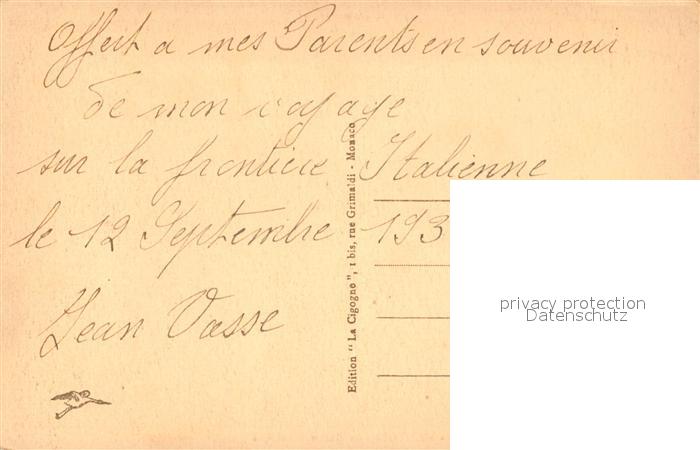 Offert a mes Parents en souvenir
de mon voyage
sur la frontiere Italienne
le 12 Septembre 193
Jean Vasse
Edition "La Cigogne", 1 bis, rue Grimaldi - Monaco
privacy protection
Datenschutz